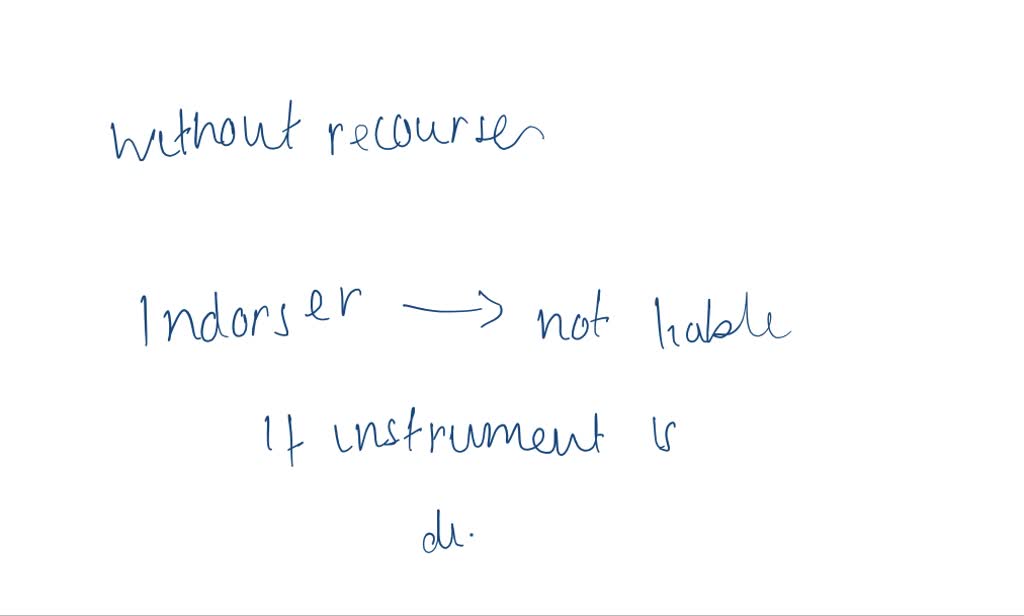 without recourse
Indorser → not liable
If instrument is
di